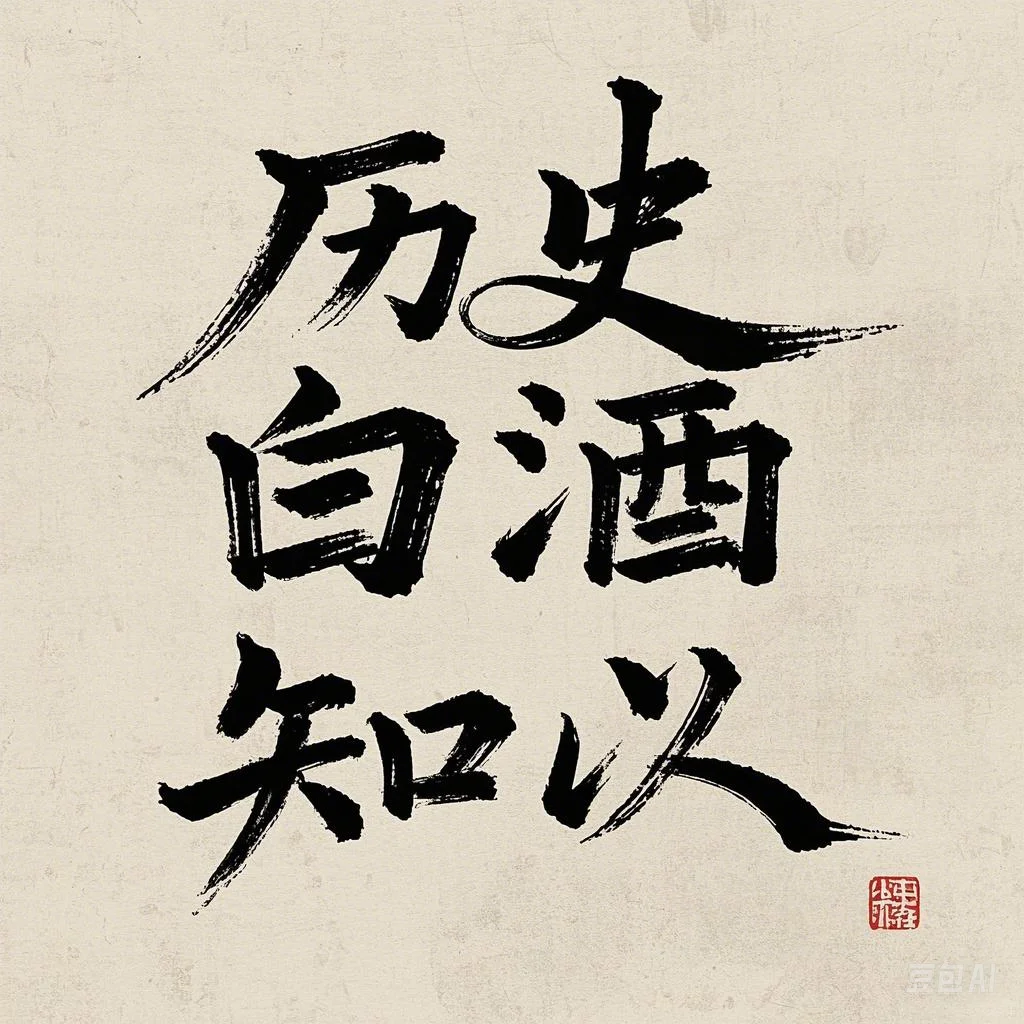 历史
白酒
知以
豆包AI